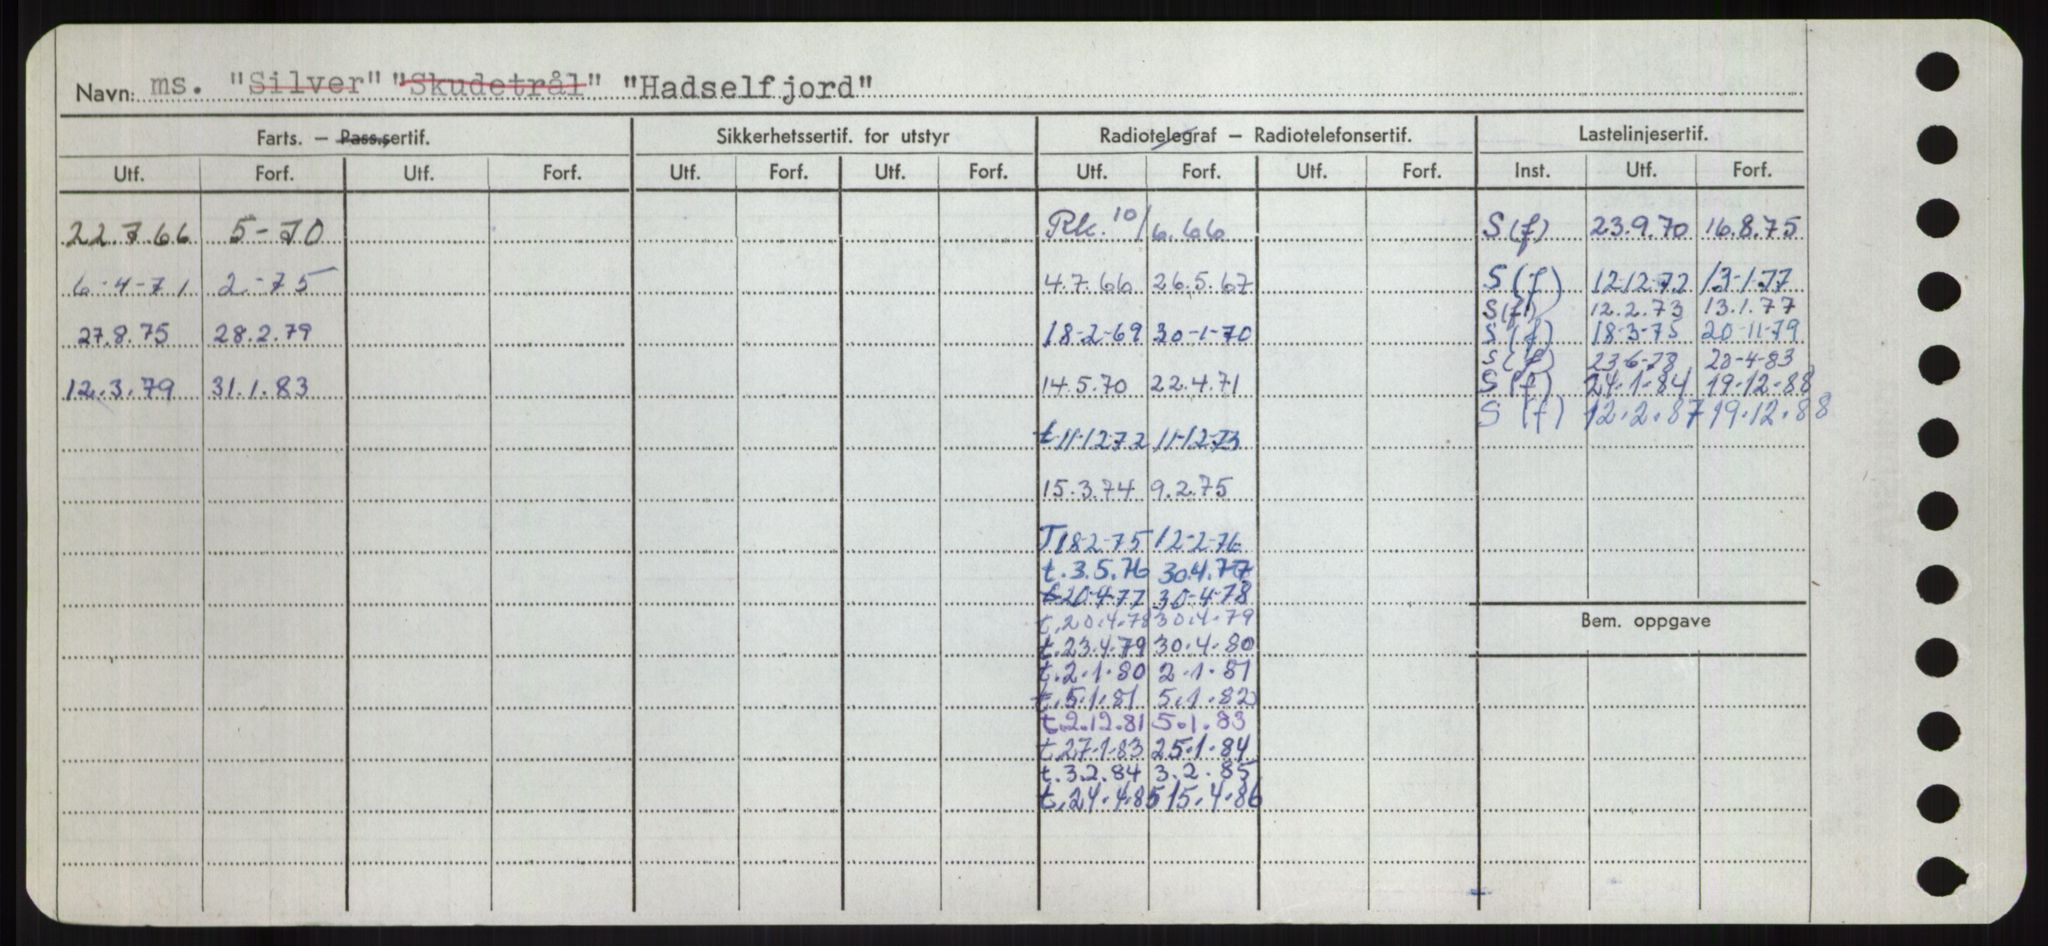 Navn: ms. "Silver" "Skudetrål" "Hadselfjord"
Farts. — Pass.sertif. Sikkerhetssertif. for utstyr Radiotelegraf — Radiotelefonsertif. Lastelinjesertif.
Utf. Forf. Utf. Forf. Utf. Forf. Utf. Forf. Utf. Forf. Utf. Forf. Inst. Utf. Forf.
22.7.66 5-70 Rk. 10/6.66 S(f) 23.9.70 16.8.75
6-4-71 2-75 4.7.66 26.5.67 S(f) 12.12.72 13-1.77
S(f) 12.2.73 13.1.77
27.8.75 28.2.79 18-2-69 30-1-70 S(f) 18-3-75 20-11-79
S(f) 23-6-78 20-4-83
12.3.79 31.1.83 14.5.70 22.4.71 S(f) 24.1.84 19.12.88
S(f) 12.2.87 19.12.88
t 11-12 72 11-12-73
15.3.74 9.2.75
T 18-2-75 12-2-76
t. 3.5.76 30.4.77
t 20-4-77 30-4-78
t. 20.4.78 30.4.79
t. 23.4.79 30.4.80
t. 2.1.80 2.1.81
t. 5.1.81 5.1.82
t. 2.12.81 5.1.83
t. 27.1.83 25.1.84
t. 3.2.84 3.2.85
t. 24.4.85 15.4.86
Bem. oppgave